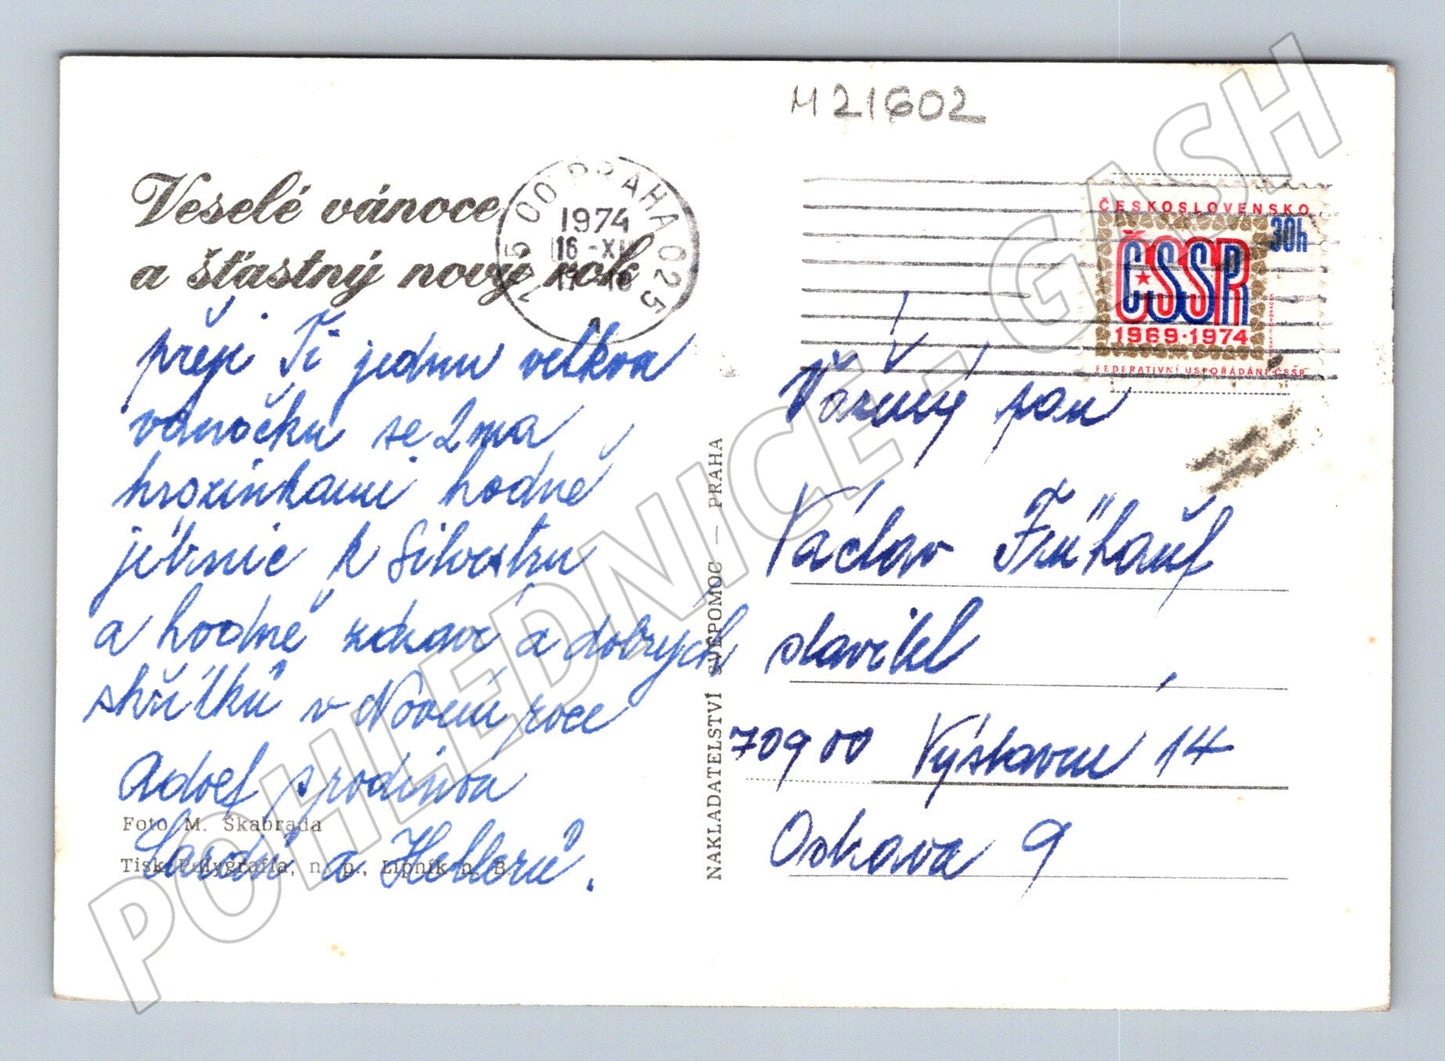 M21602
Veselé vánoce
a šťastný nový rok
přeje Ti jednu velkou
vánočku se 2ma
hrozinkami hodně
jitrnic k Silvestru
a hodně zdraví a dobrých
skřítků v Novém roce
Adolf s rodinou
a Hellerů.
Foto M. Škabrada
Tisk Polygrafia, n. p., Lipník n. B.
NAKLADATELSTVÍ SVÉPOMOC — PRAHA
OO PRAHA 025
1974
16 -XII
ČESKOSLOVENSKO
30h
ČSSR
1969·1974
FEDERATIVNÍ USPOŘÁDÁNÍ ČSSR
Vážený pan
Václav Frühauf
stavitel
70900 Výstavní 14
Ostrava 9
POHLEDNICE - GASH